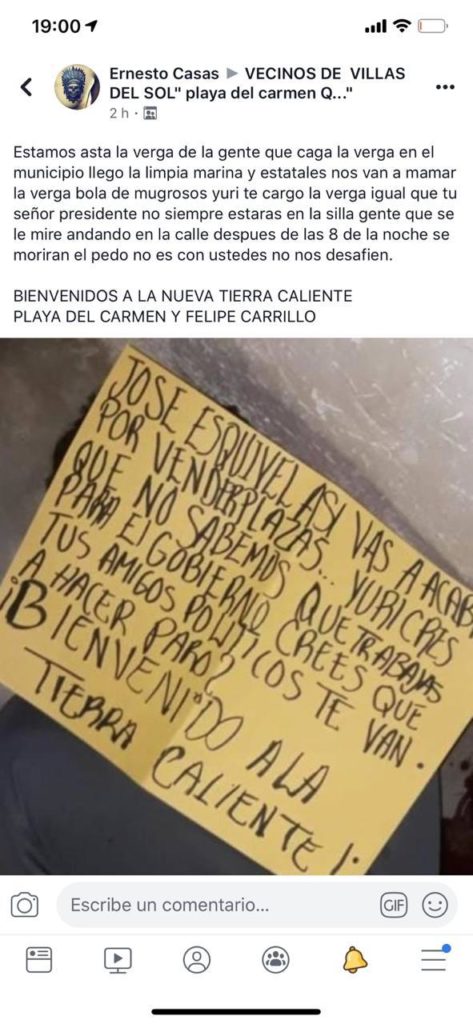 19:00
Ernesto Casas ▶ VECINOS DE VILLAS
DEL SOL" playa del carmen Q..."
2 h ·
Estamos asta la verga de la gente que caga la verga en el
municipio llego la limpia marina y estatales nos van a mamar
la verga bola de mugrosos yuri te cargo la verga igual que tu
señor presidente no siempre estaras en la silla gente que se
le mire andando en la calle despues de las 8 de la noche se
moriran el pedo no es con ustedes no nos desafien.
BIENVENIDOS A LA NUEVA TIERRA CALIENTE
PLAYA DEL CARMEN Y FELIPE CARRILLO
JOSE ESQUIVEL ASI VAS A ACAB
POR VENDER PLAZAS.. YURI CRES
QUE NO SABEMOS QUE TRABAJAS
PARA EL GOBIERNO CREES QUE
TUS AMIGOS POLITICOS TE VAN.
A HACER PARO?
¡BIENVENIDO A LA
TIERRA CALIENTE!
Escribe un comentario...
GIF